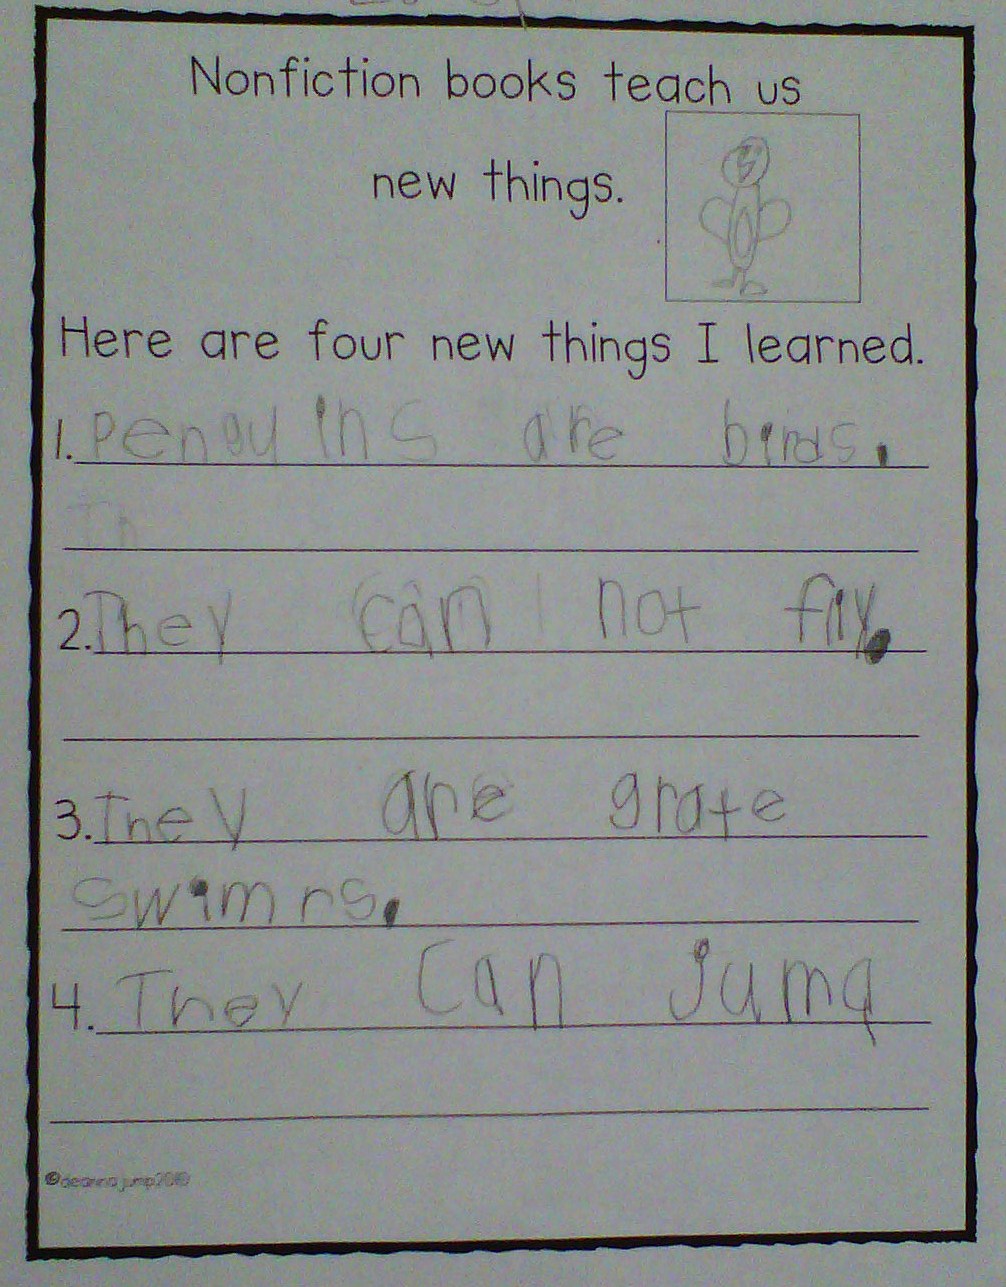 Nonfiction books teach us
new things.
Here are four new things I learned.
1. Penguins are birds.
Th
2. They can not fly.
3. They are grate
swimrs.
4. They can jumq
©deanna jump 2010